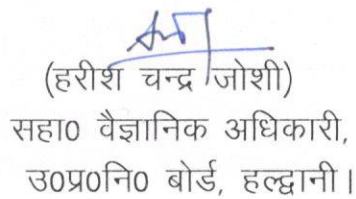 (हरीश चन्द्र जोशी)
सहा0 वैज्ञानिक अधिकारी,
उ0प्र0नि0 बोर्ड, हल्द्वानी।